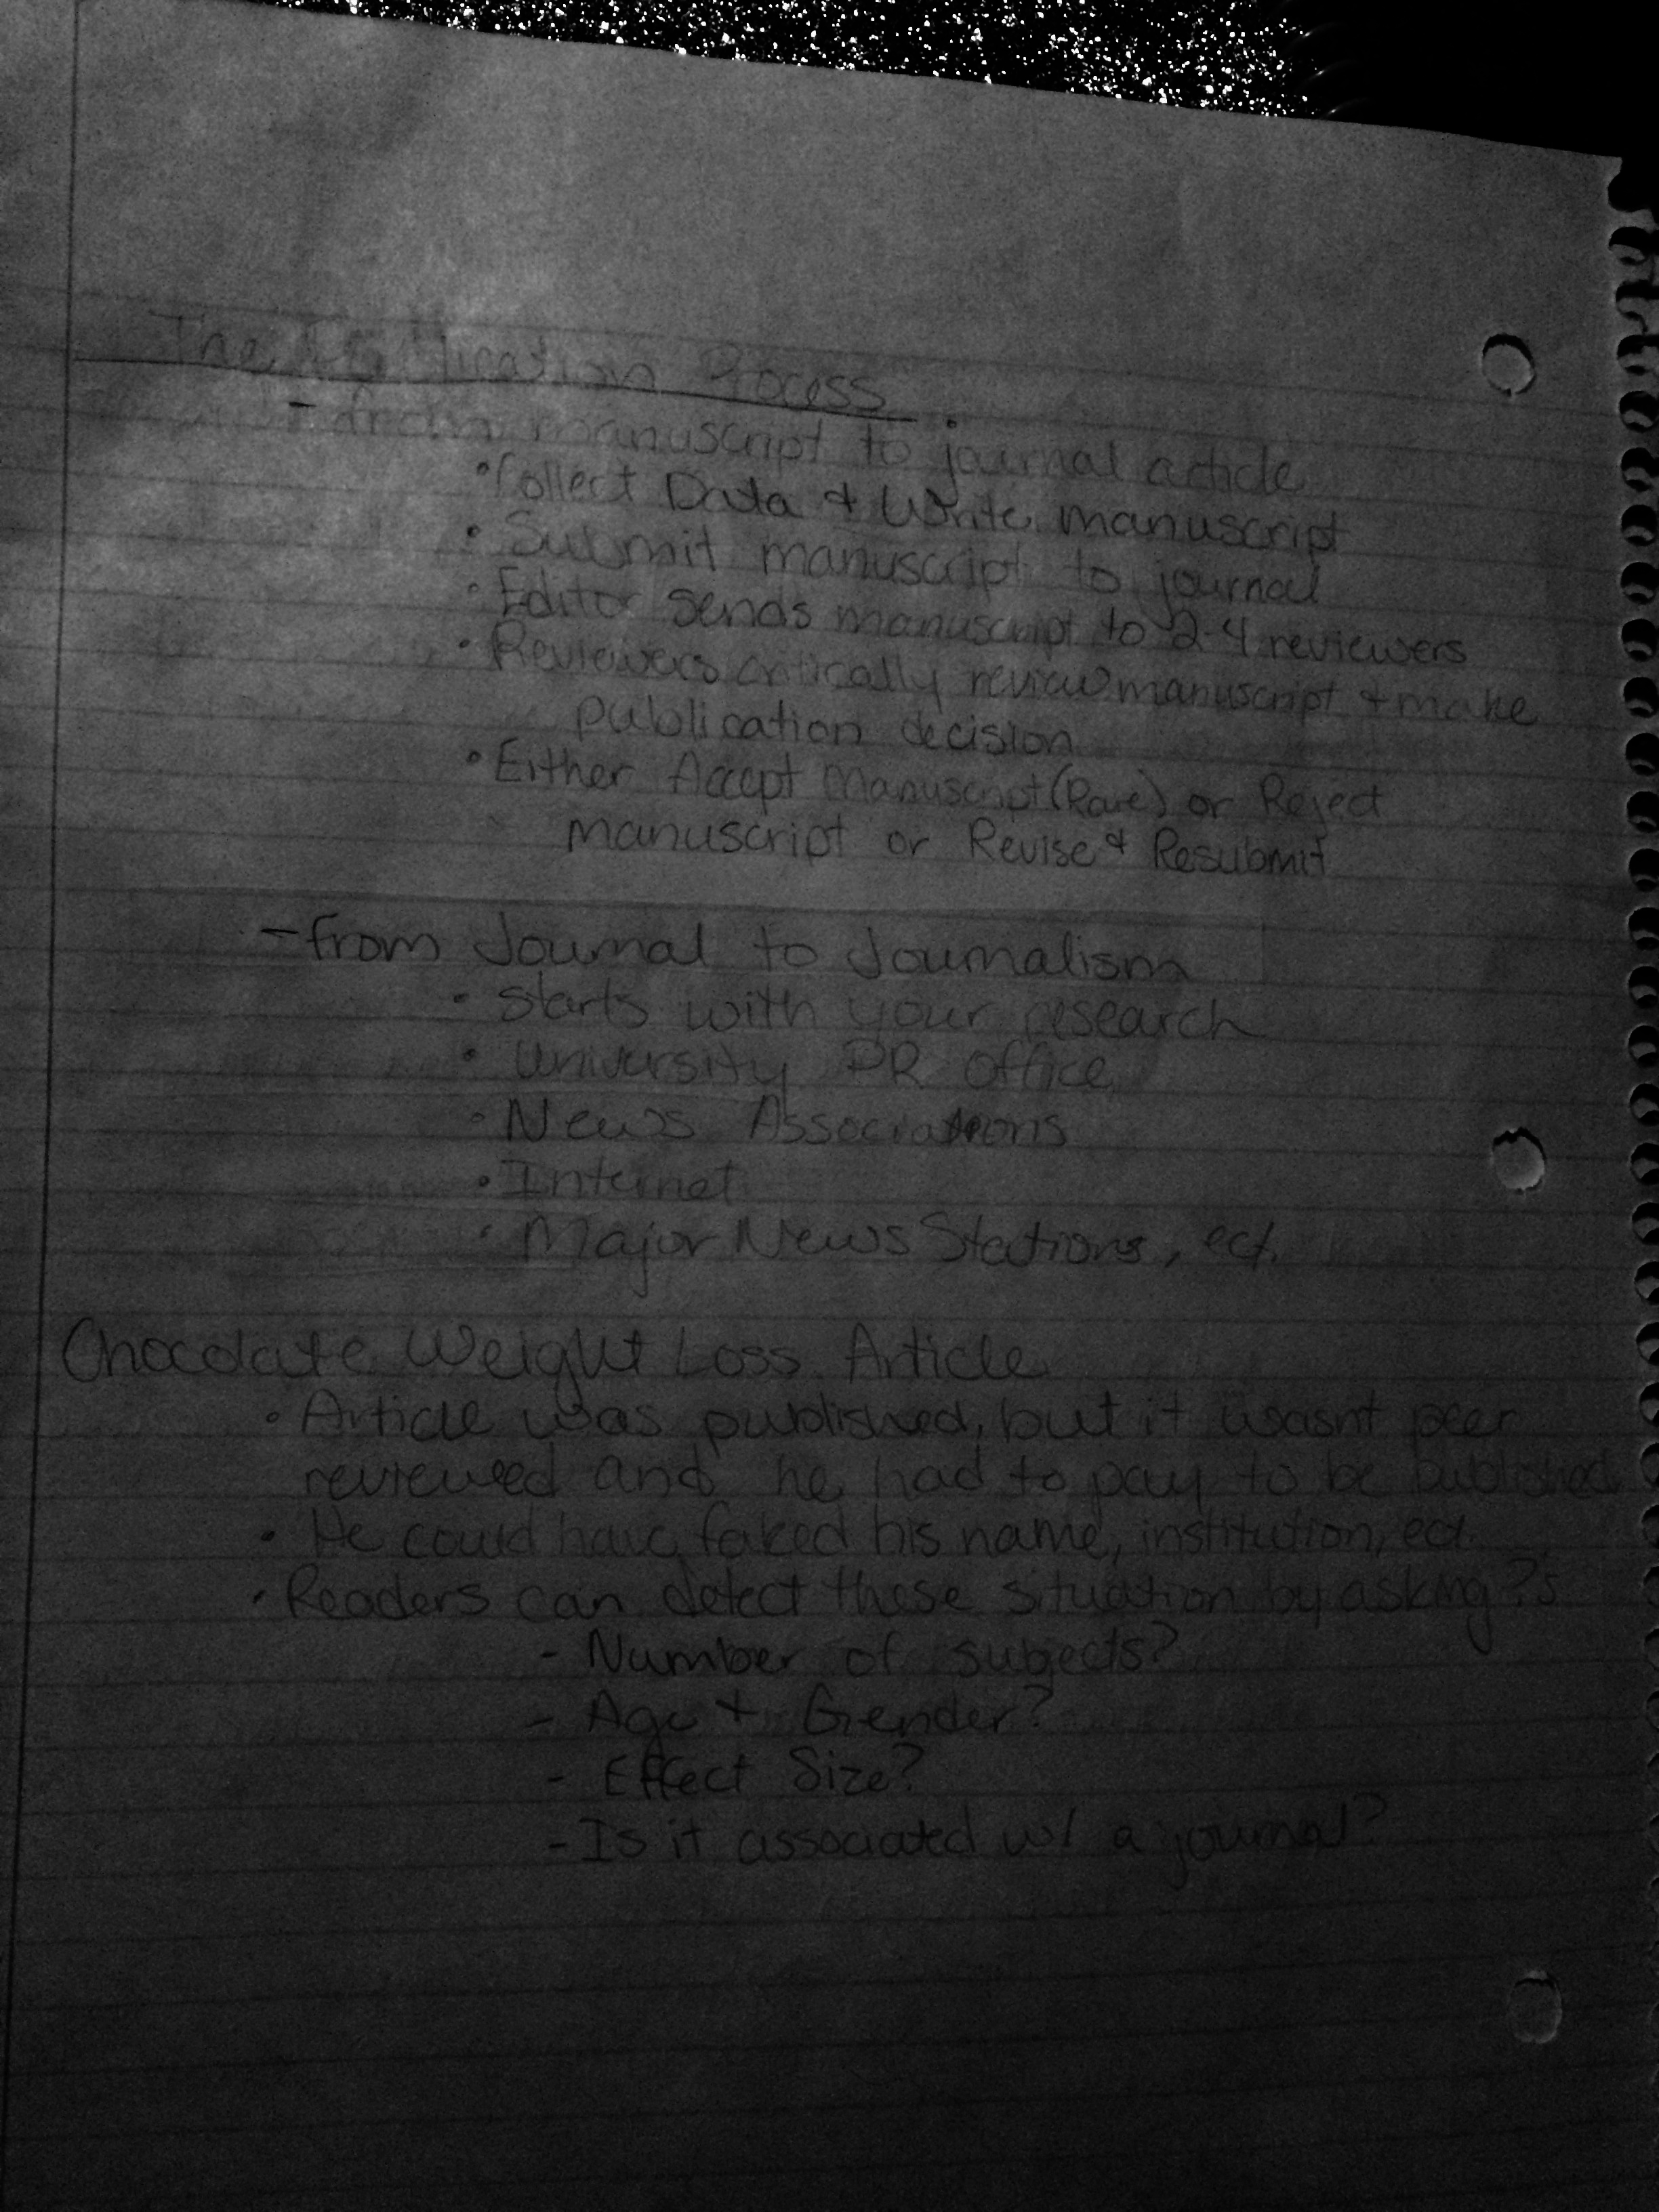 The Publication Process
- from manuscript to journal article
• Collect Data + Write manuscript
• Submit manuscript to journal
• Editor sends manuscript to 2-4 reviewers
• Reviewers critically review manuscript + make
publication decision
• Either Accept Manuscript (Rare) or Reject
manuscript or Revise + Resubmit
- from Journal to Journalism
• starts with your research
• University PR office
• News Associations
• Internet
• Major News Stations, ect.
Chocolate Weight Loss Article
• Article was published, but it wasnt peer
reviewed and he had to pay to be published
• He could have faked his name, institution, ect.
• Readers can detect these situation by asking ?s
- Number of subjects?
- Age + Gender?
- Effect Size?
- Is it associated w/ a journal?